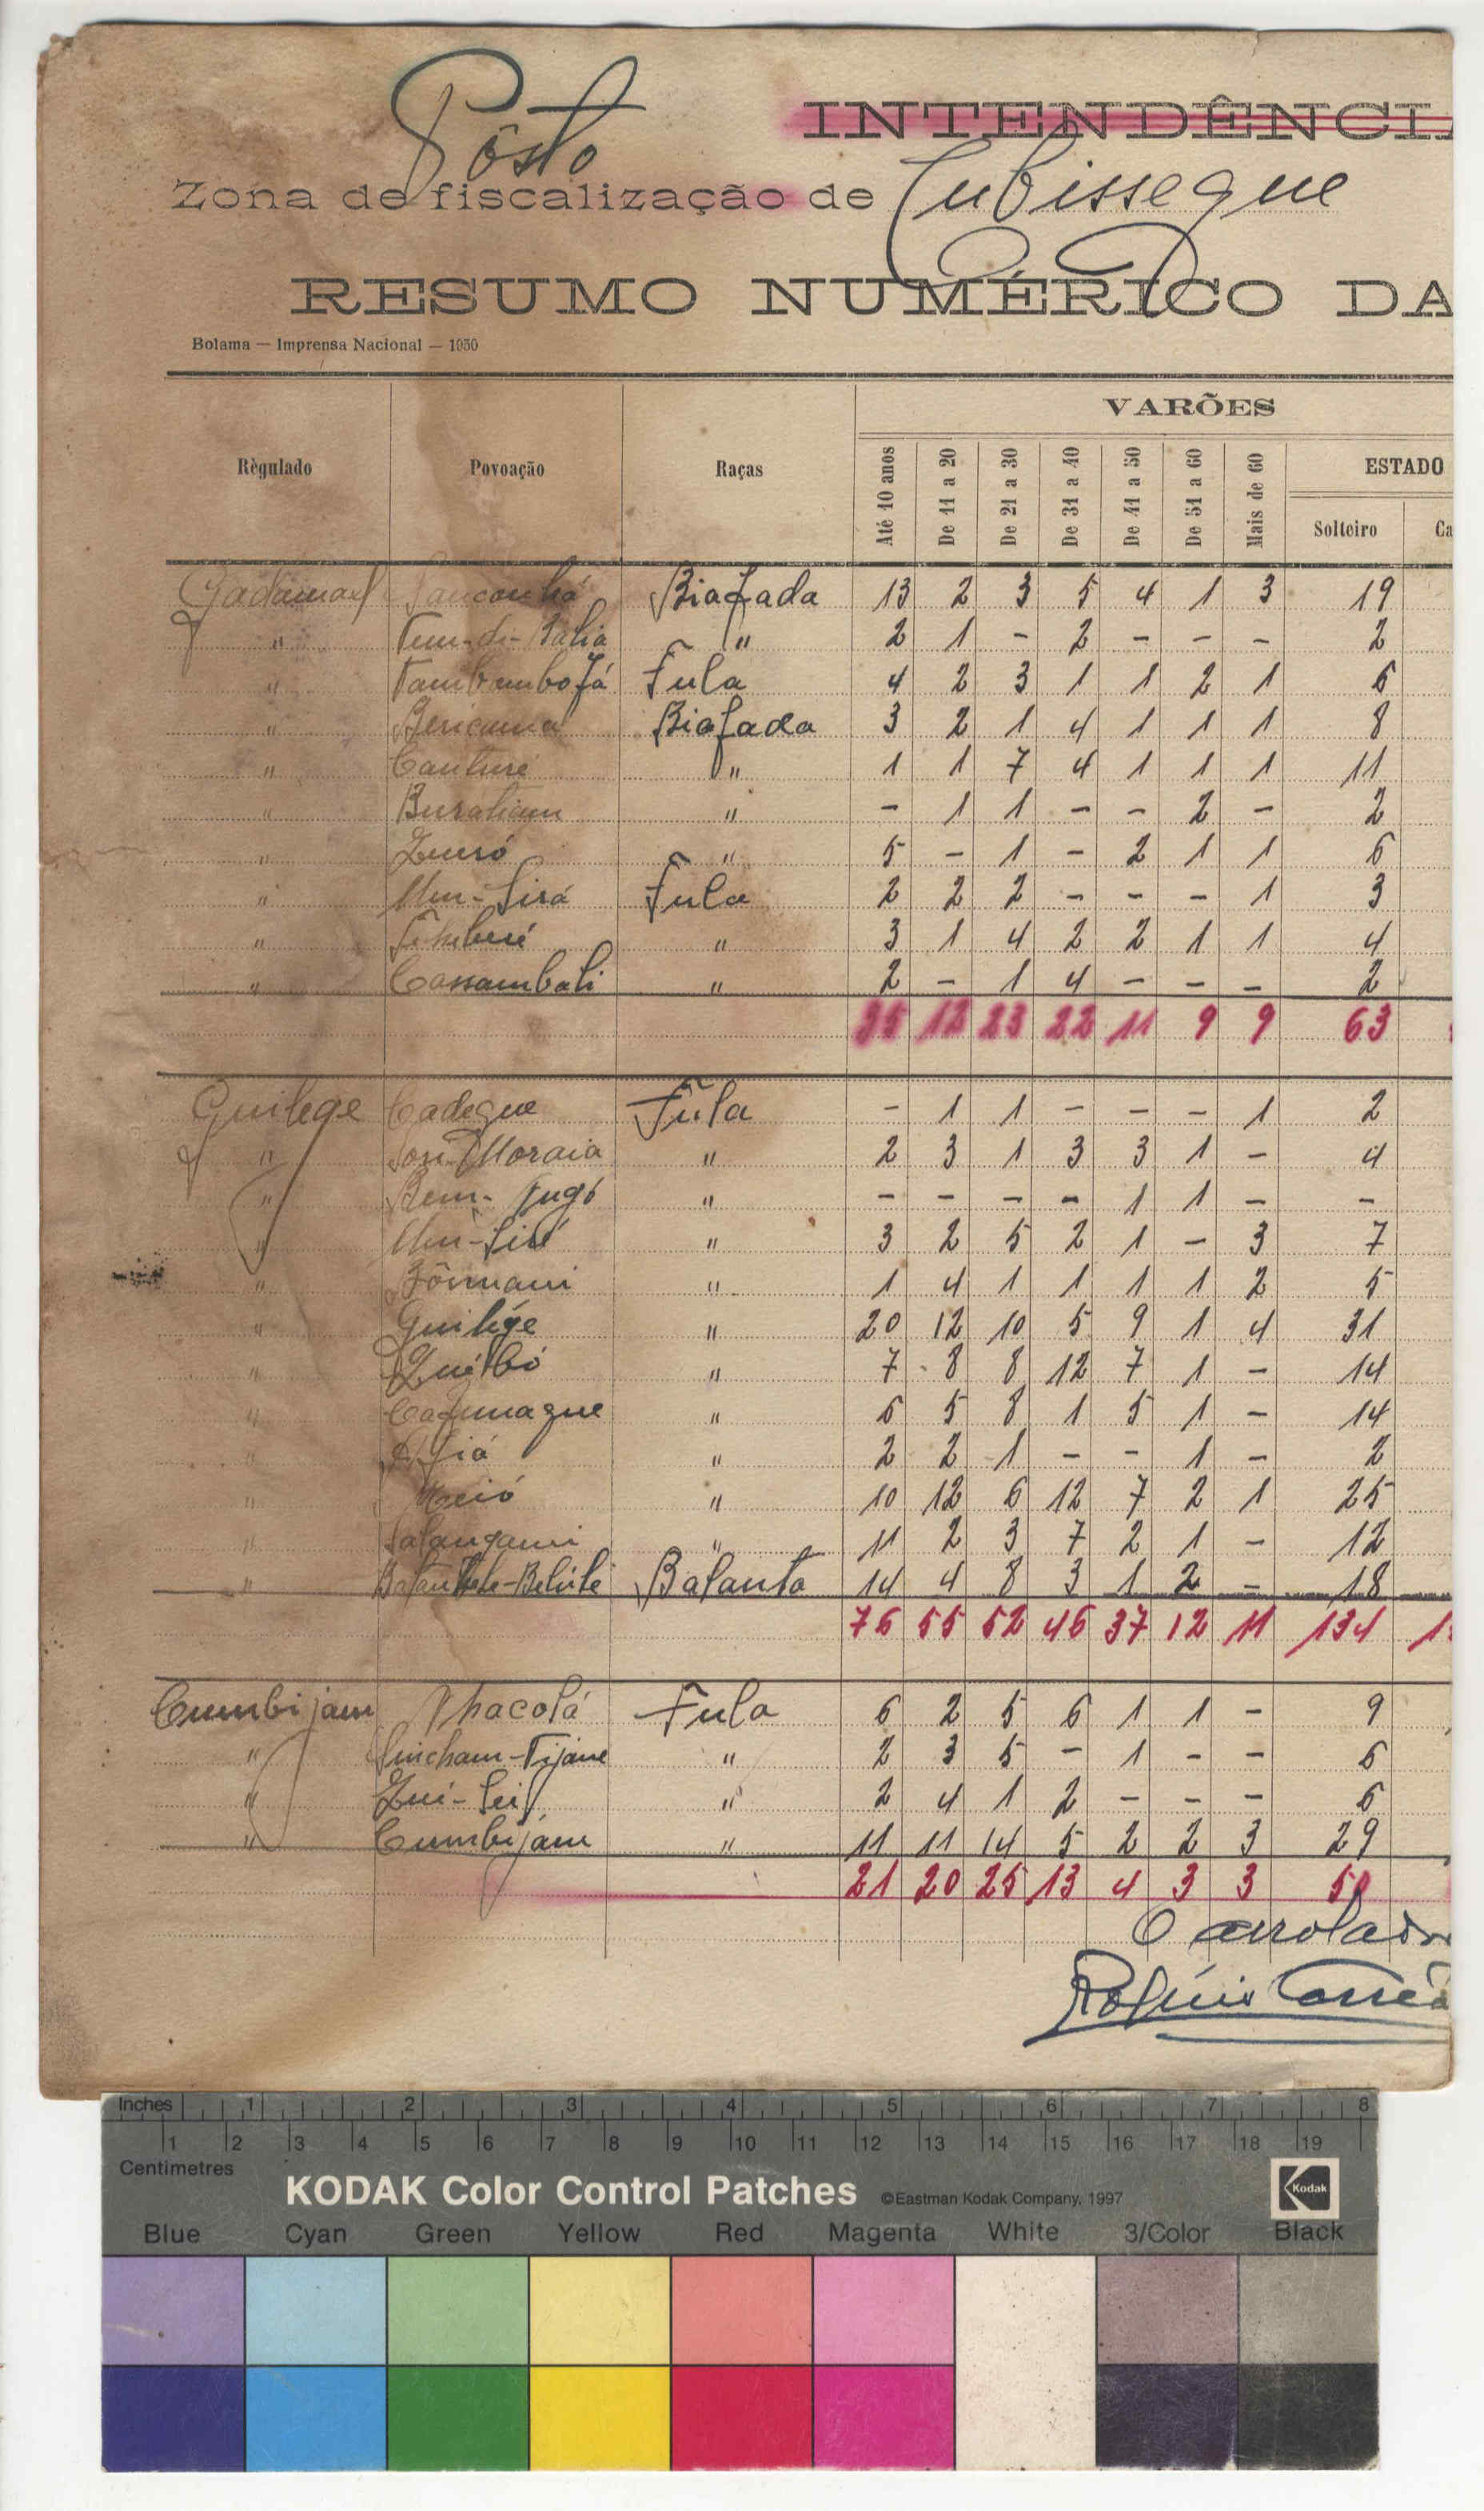 Pôsto
INTENDÊNCI
Zona de fiscalização de Cubisseque
RESUMO NUMÉRICO DA
Bolama — Imprensa Nacional — 1950
VARÕES
Règulado Povoação Raças Até 10 anos De 11 a 20 De 21 a 30 De 31 a 40 De 41 a 50 De 51 a 60 Mais de 60 ESTADO
Solteiro Ca
Gadamael Sanconhá Biafada 13 2 3 5 4 1 3 19
" " 2 1 - 2 - - - 2
" Fula 4 2 3 1 1 2 1 6
" Biafada 3 2 1 4 1 1 1 8
" Cauturé " 1 1 7 4 1 1 1 11
" " - 1 1 - - 2 - 2
" " 5 - 1 - 2 1 1 6
" Um-Sirá Fula 2 2 2 - - - 1 3
" " 3 1 4 2 2 1 1 4
" Cassambali " 2 - 1 4 - - - 2
35 12 23 22 11 9 9 63
Guilege Cadeque Fula - 1 1 - - - 1 2
" " 2 3 1 3 3 1 - 4
" " - - - - 1 1 - -
" Um-Siré " 3 2 5 2 1 - 3 7
" " 1 4 1 1 1 1 2 5
" Guilége " 20 12 10 5 9 1 4 31
" " 7 8 8 12 7 1 - 14
" Cafunaque " 6 5 8 1 5 1 - 14
" Afiá " 2 2 1 - - 1 - 2
" " 10 12 6 12 7 2 1 25
" Salancaur " 11 2 3 7 2 1 - 12
" Balanta 14 4 8 3 1 2 - 18
76 55 52 46 37 12 11 134
Cumbijam Nhacobá Fula 6 2 5 6 1 1 - 9
" Sincham-Tijane " 2 3 5 - 1 - - 6
" " 2 4 1 2 - - - 6
" Cumbijam " 11 11 14 5 2 2 3 29
21 20 25 13 4 3 3 50
O arrolador
Inches 1 2 3 4 5 6 7 8
1 2 3 4 5 6 7 8 9 10 11 12 13 14 15 16 17 18 19
Centimetres
KODAK Color Control Patches ©Eastman Kodak Company, 1997 Kodak
Blue Cyan Green Yellow Red Magenta White 3/Color Black